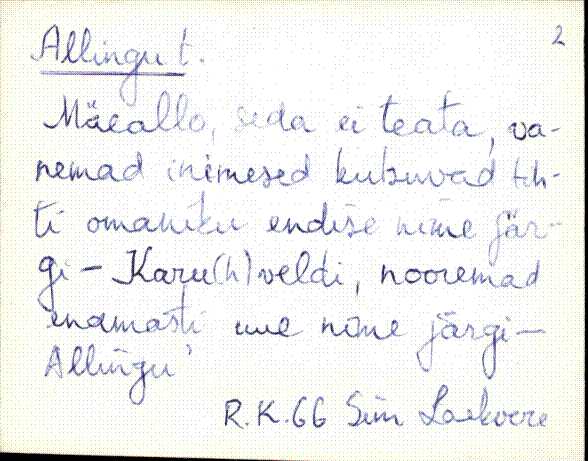 Allingu t.
2
Mäeallo, seda ei teata, va-
nemad inimesed kutsuvad tih-
ti omaniku endise nime jär-
gi - Karu(h)veldi, nooremad
enamasti uue nime järgi -
Allingu'
R.K.66 Sim Laekvere